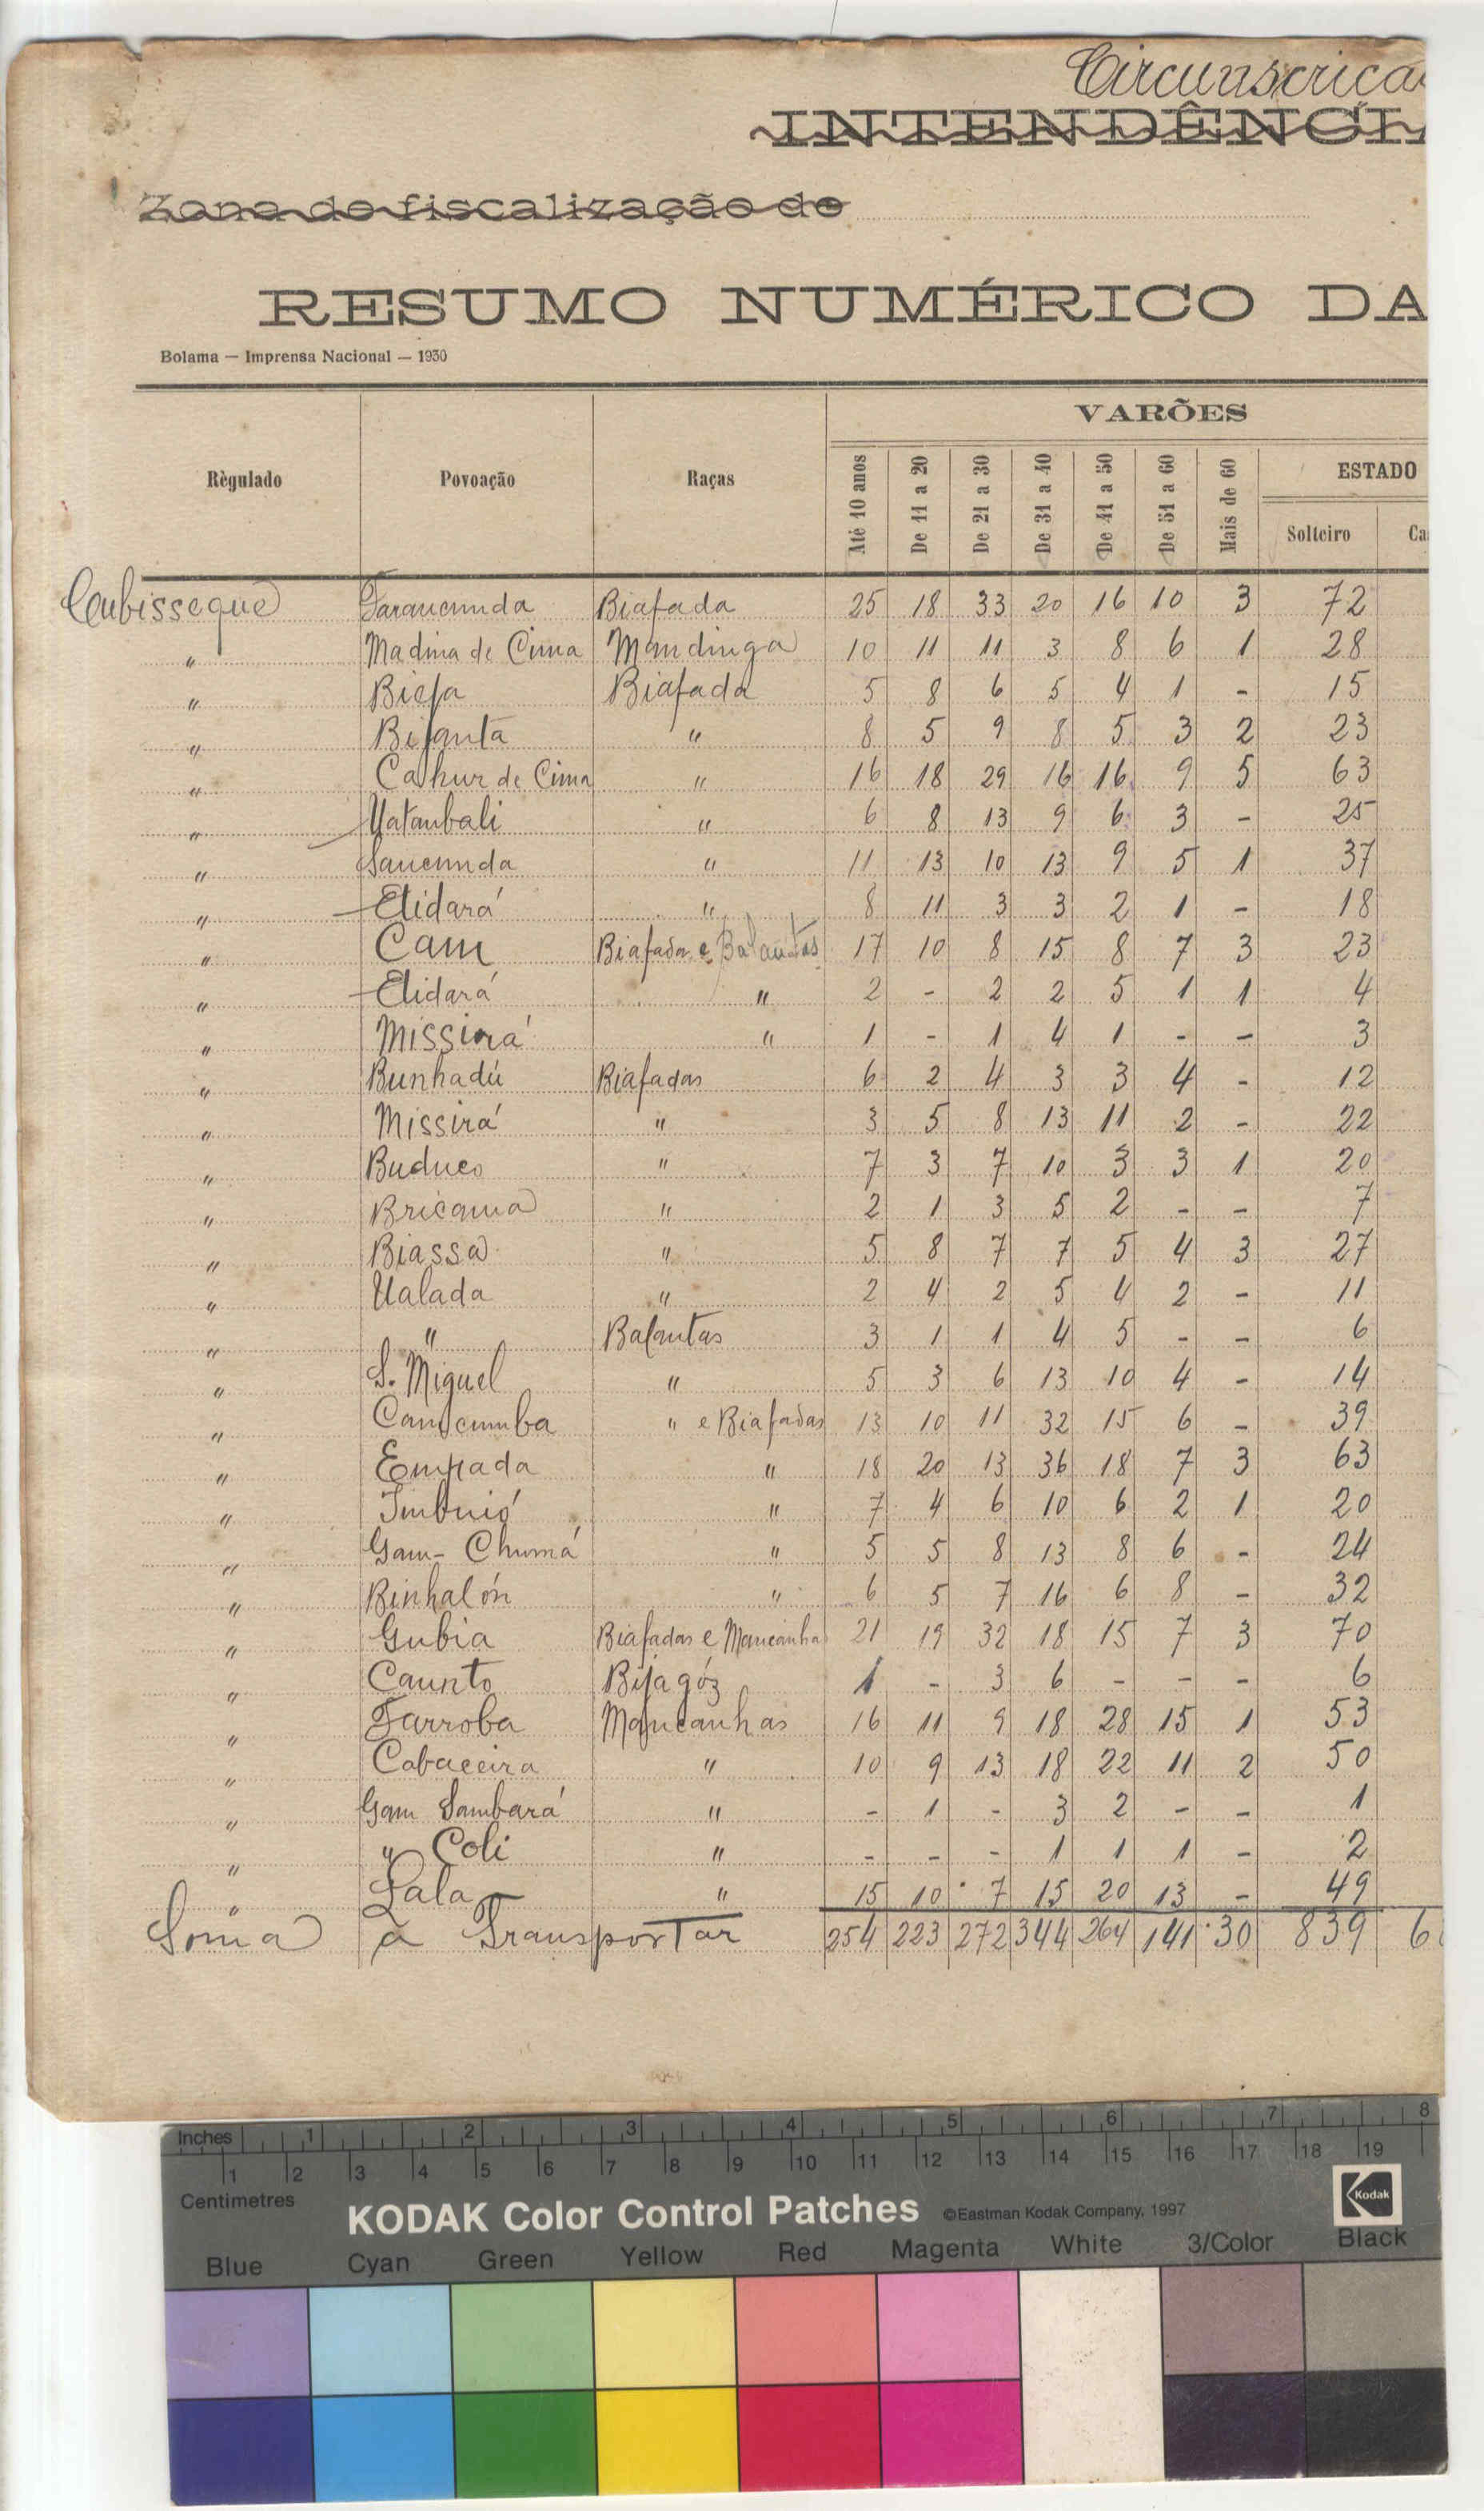 Circunscrica
INTENDÊNCIA
Zona de fiscalização de
RESUMO NUMÉRICO DA
Bolama — Imprensa Nacional — 1930
VARÕES
Règulado Povoação Raças Até 10 anos De 11 a 20 De 21 a 30 De 31 a 40 De 41 a 50 De 51 a 60 Mais de 60 ESTADO
Solteiro Ca
Cubisseque Farancunda Biafada 25 18 33 20 16 10 3 72
" Madina de Cima Mandinga 10 11 11 3 8 6 1 28
" Biefa Biafada 5 8 6 5 4 1 - 15
" Bijanta " 8 5 9 8 5 3 2 23
" Cahur de Cima " 16 18 29 16 16 9 5 63
" Uatambali " 6 8 13 9 6 3 - 25
" Sancunda " 11 13 10 13 9 5 1 37
" Elidará " 8 11 3 3 2 1 - 18
" Cam Biafada e Balantas 17 10 8 15 8 7 3 23
" Elidará " 2 - 2 2 5 1 1 4
" Missirá " 1 - 1 4 1 - - 3
" Bunhadú Biafadas 6 2 4 3 3 4 - 12
" Missirá " 3 5 8 13 11 2 - 22
" Buduco " 7 3 7 10 3 3 1 20
" Bricama " 2 1 3 5 2 - - 7
" Biassa " 5 8 7 7 5 4 3 27
" Ualada " 2 4 2 5 4 2 - 11
" " Balantas 3 1 1 4 5 - - 6
" S. Miguel " 5 3 6 13 10 4 - 14
" Cancumba " e Biafadas 13 10 11 32 15 6 - 39
" Empada " 18 20 13 36 18 7 3 63
" Imbuió " 7 4 6 10 6 2 1 20
" Gam-Chumá " 5 5 8 13 8 6 - 24
" Binhalón " 6 5 7 16 6 8 - 32
" Gubia Biafadas e Mancanha 21 19 32 18 15 7 3 70
" Caunto Bijagóz 1 - 3 6 - - - 6
" Farroba Mancanhas 16 11 9 18 28 15 1 53
" Cabaceira " 10 9 13 18 22 11 2 50
" Gam Sambará " - 1 - 3 2 - - 1
" " Coli " - - - 1 1 1 - 2
" Lala " 15 10 7 15 20 13 - 49
Soma à Transportar 254 223 272 344 264 141 30 839 6
Inches 1 2 3 4 5 6 7 8
1 2 3 4 5 6 7 8 9 10 11 12 13 14 15 16 17 18 19
Centimetres
KODAK Color Control Patches ©Eastman Kodak Company, 1997 Kodak
Blue Cyan Green Yellow Red Magenta White 3/Color Black